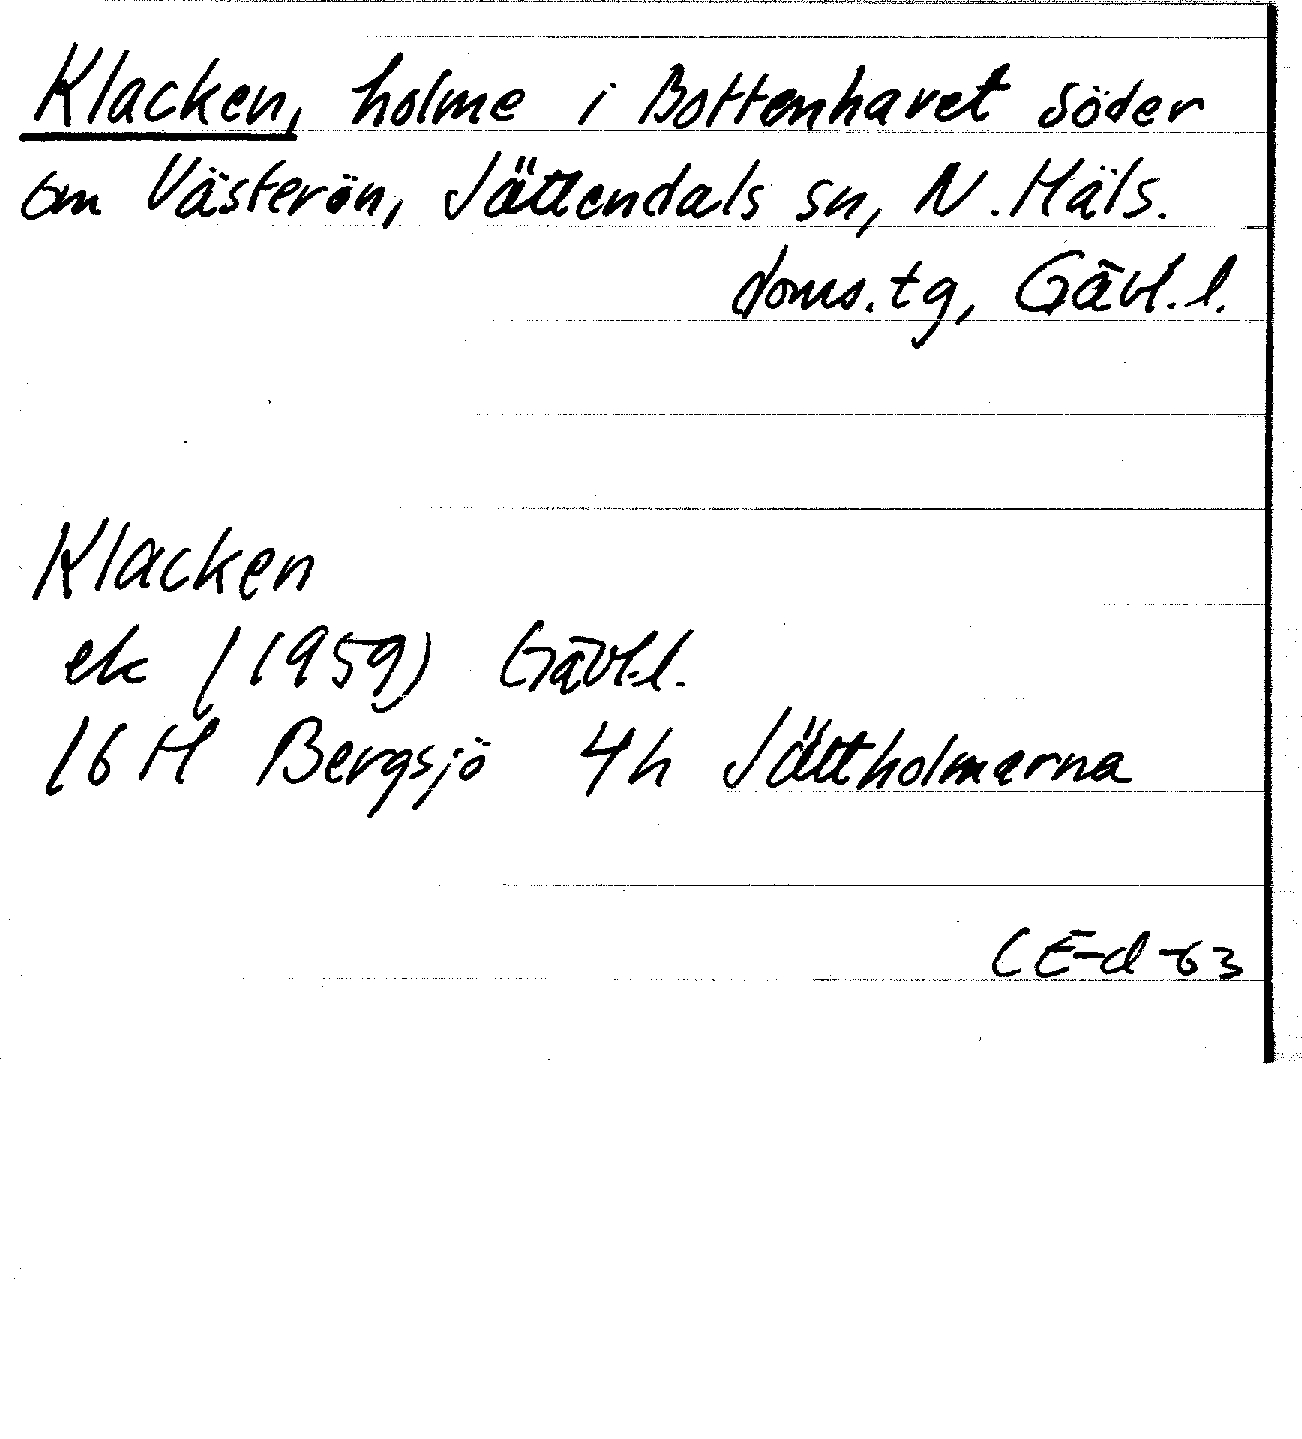 Klacken, holme i Bottenhavet söder
om Västerön, Jättendals sn, N. Häls.
doms.tg, Gävl.l.
Klacken
ek (1959) Gävl.l.
16 H Bergsjö 4h Jättholmarna
CE-d -63